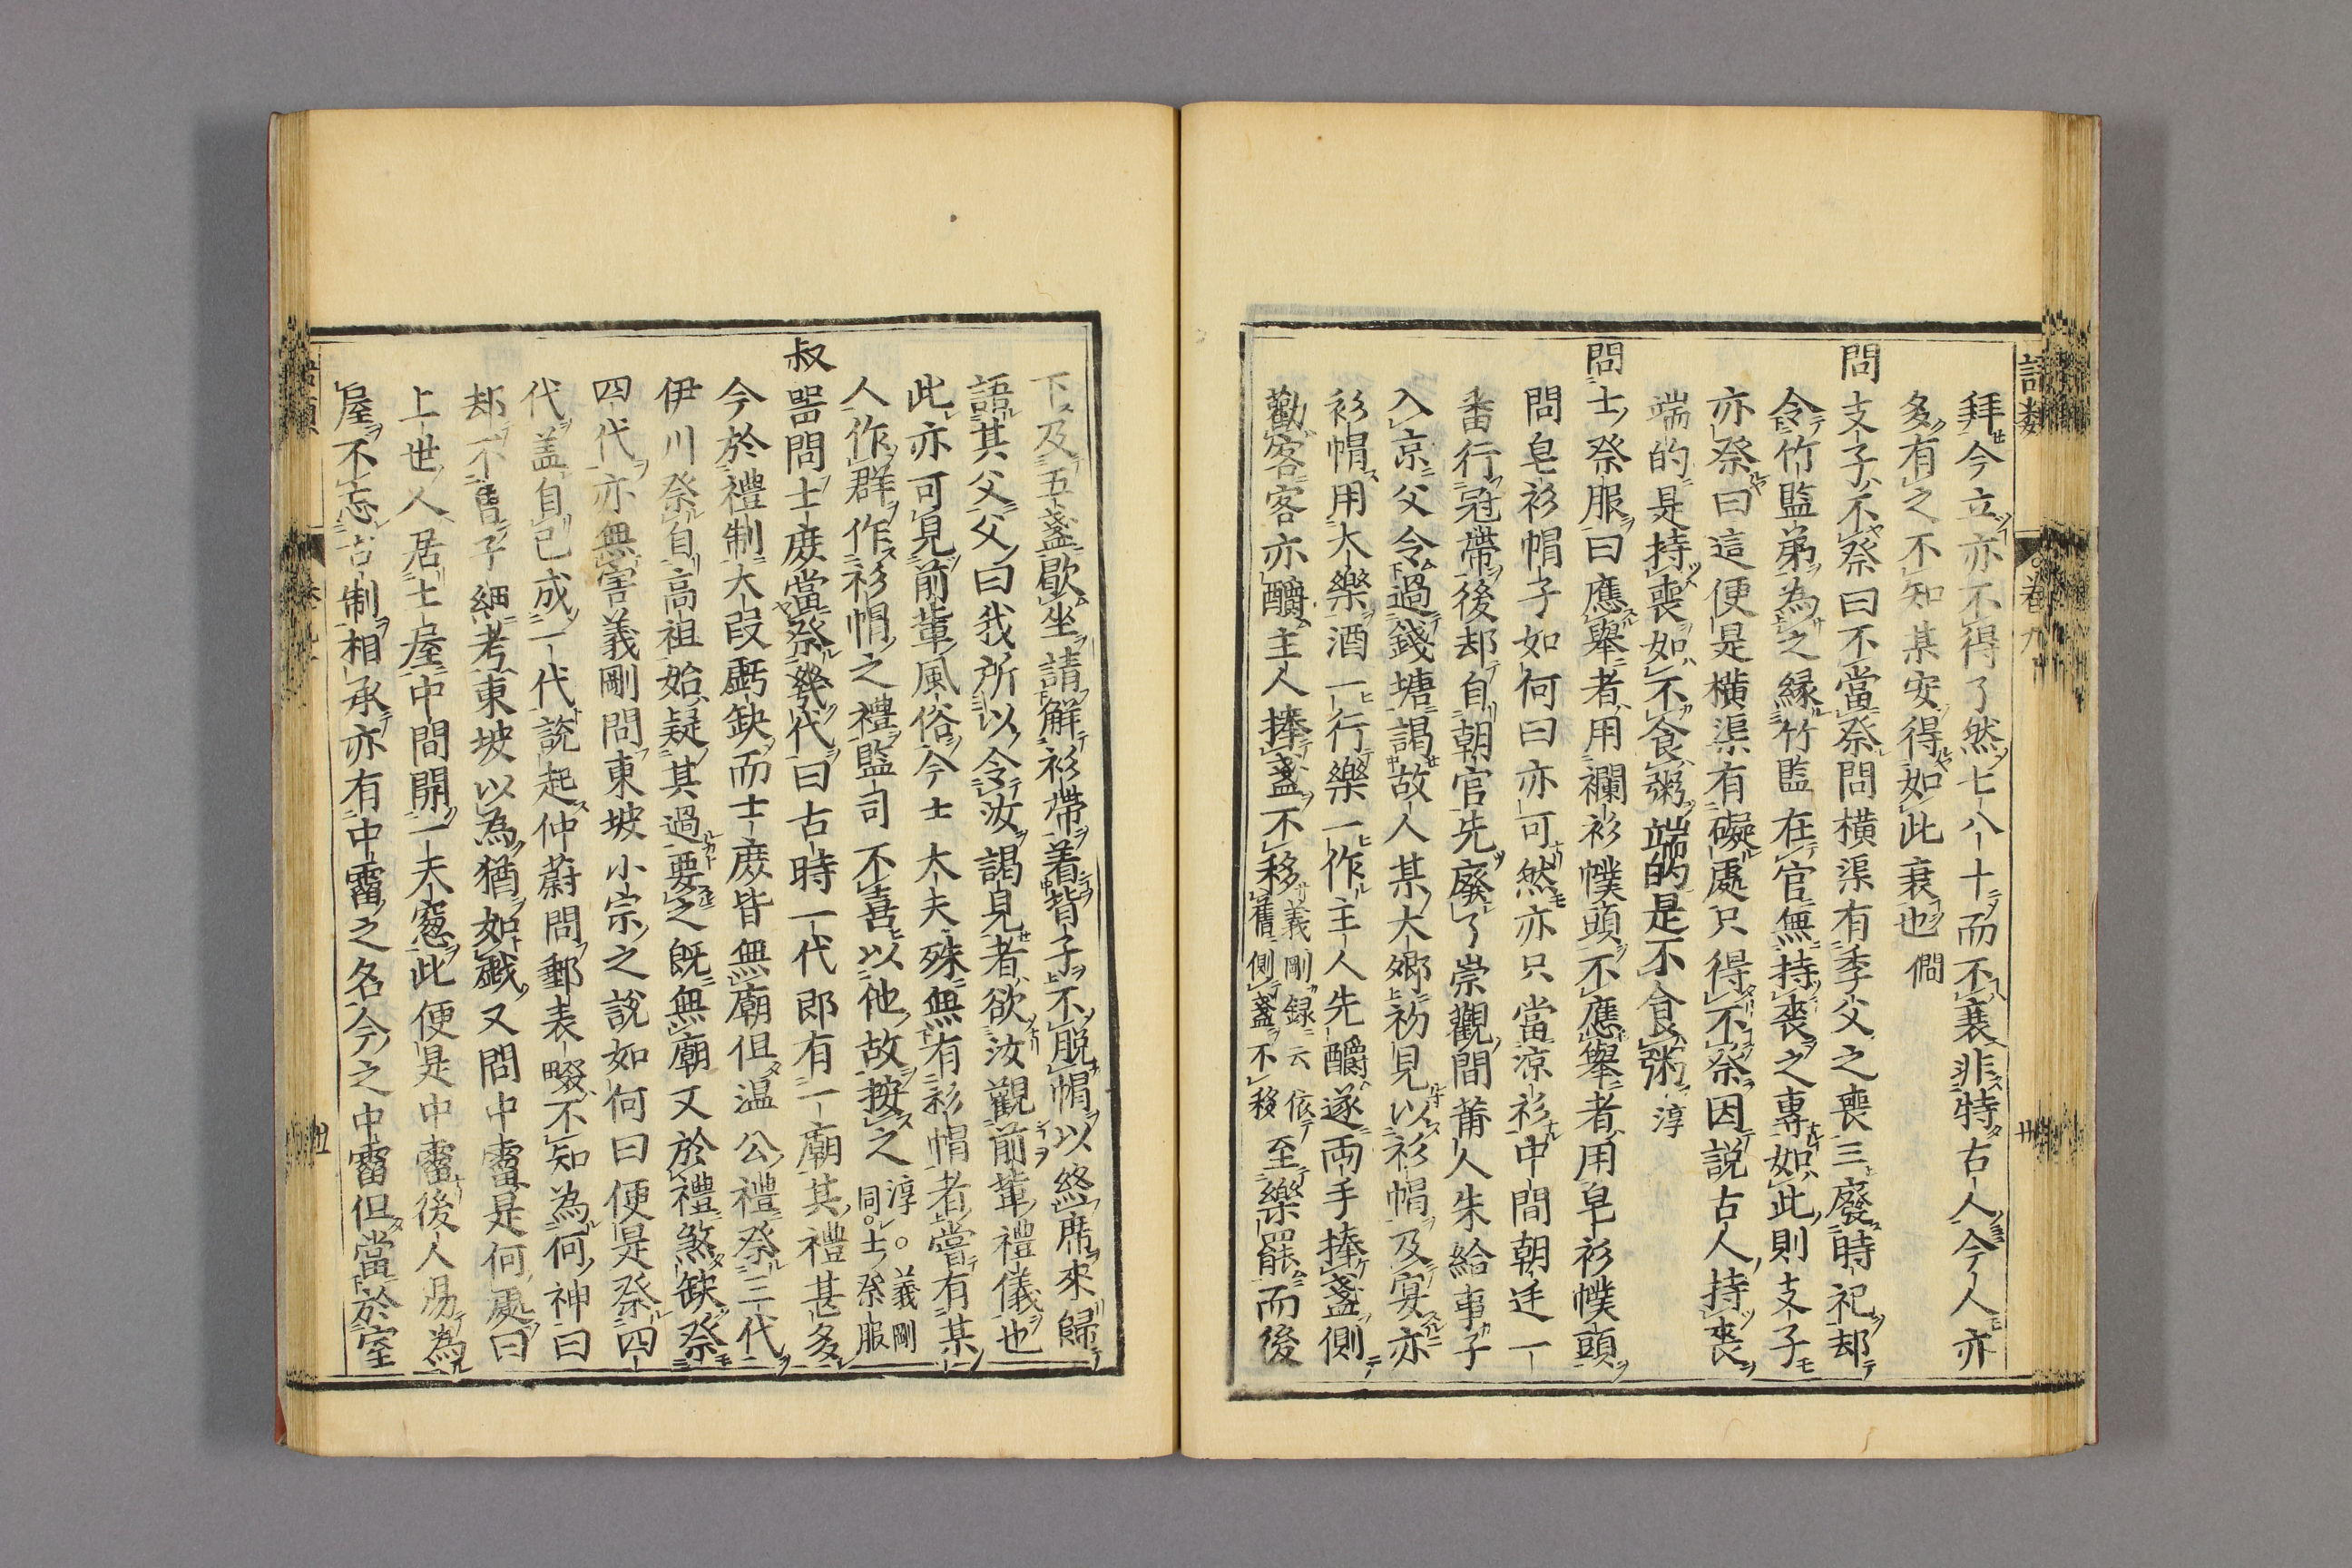 語類
卷九
廿
拜今立亦不得了然七八十而不衰非特古人今人亦
多有之不知某安得如此衰也僩
問支子不祭曰不當祭問橫渠有季父之喪三廢時祀却
令竹監弟為之緣竹監在官無持喪之專如此則支子
亦祭曰這便是橫渠有礙處只得不祭因説古人持喪
端的是持喪如不食粥端的是不食粥淳
問士祭服曰應舉者用襴衫幞頭不應舉者用皂衫幞頭
問皂衫帽子如何曰亦可然亦只當凉衫中間朝廷一
番行冠帶後却自朝官先廢了崇觀間莆人朱給事子
入京父令過錢塘謁故人某大卿初見以衫帽及宴亦
衫帽用大樂酒一行樂一作主人先釂遂兩手捧盞側
勸客客亦釂主人捧盞不移義剛録云依舊側盞不移至樂罷而後
下及五盞歇坐請解衫帶着背子不脱帽以終席來歸
語其父父曰我所以令汝謁見者欲汝觀前輩禮儀也
此亦可見前輩風俗今士大夫殊無有衫帽者嘗有某
人作郡作衫帽之禮監司不喜以他故按之淳○義剛同○士祭服
叔器問士庶當祭幾代曰古時一代即有一廟其禮甚多
今於禮制大叚虧缺而士庶皆無廟但温公禮祭三代
伊川祭自高祖始疑其過要之既無廟又於禮煞缺祭
四代亦無害義剛問東坡小宗之説如何曰便是祭四
代盖自己成一代説起仲蔚問郵表畷不知為何神曰
却不曾子細考東坡以為猶如戱又問中霤是何處曰
上世人居土屋中間開一天窓此便是中霤後人易為
屋不忘古制相承亦有中霤之名今之中霤但當於室